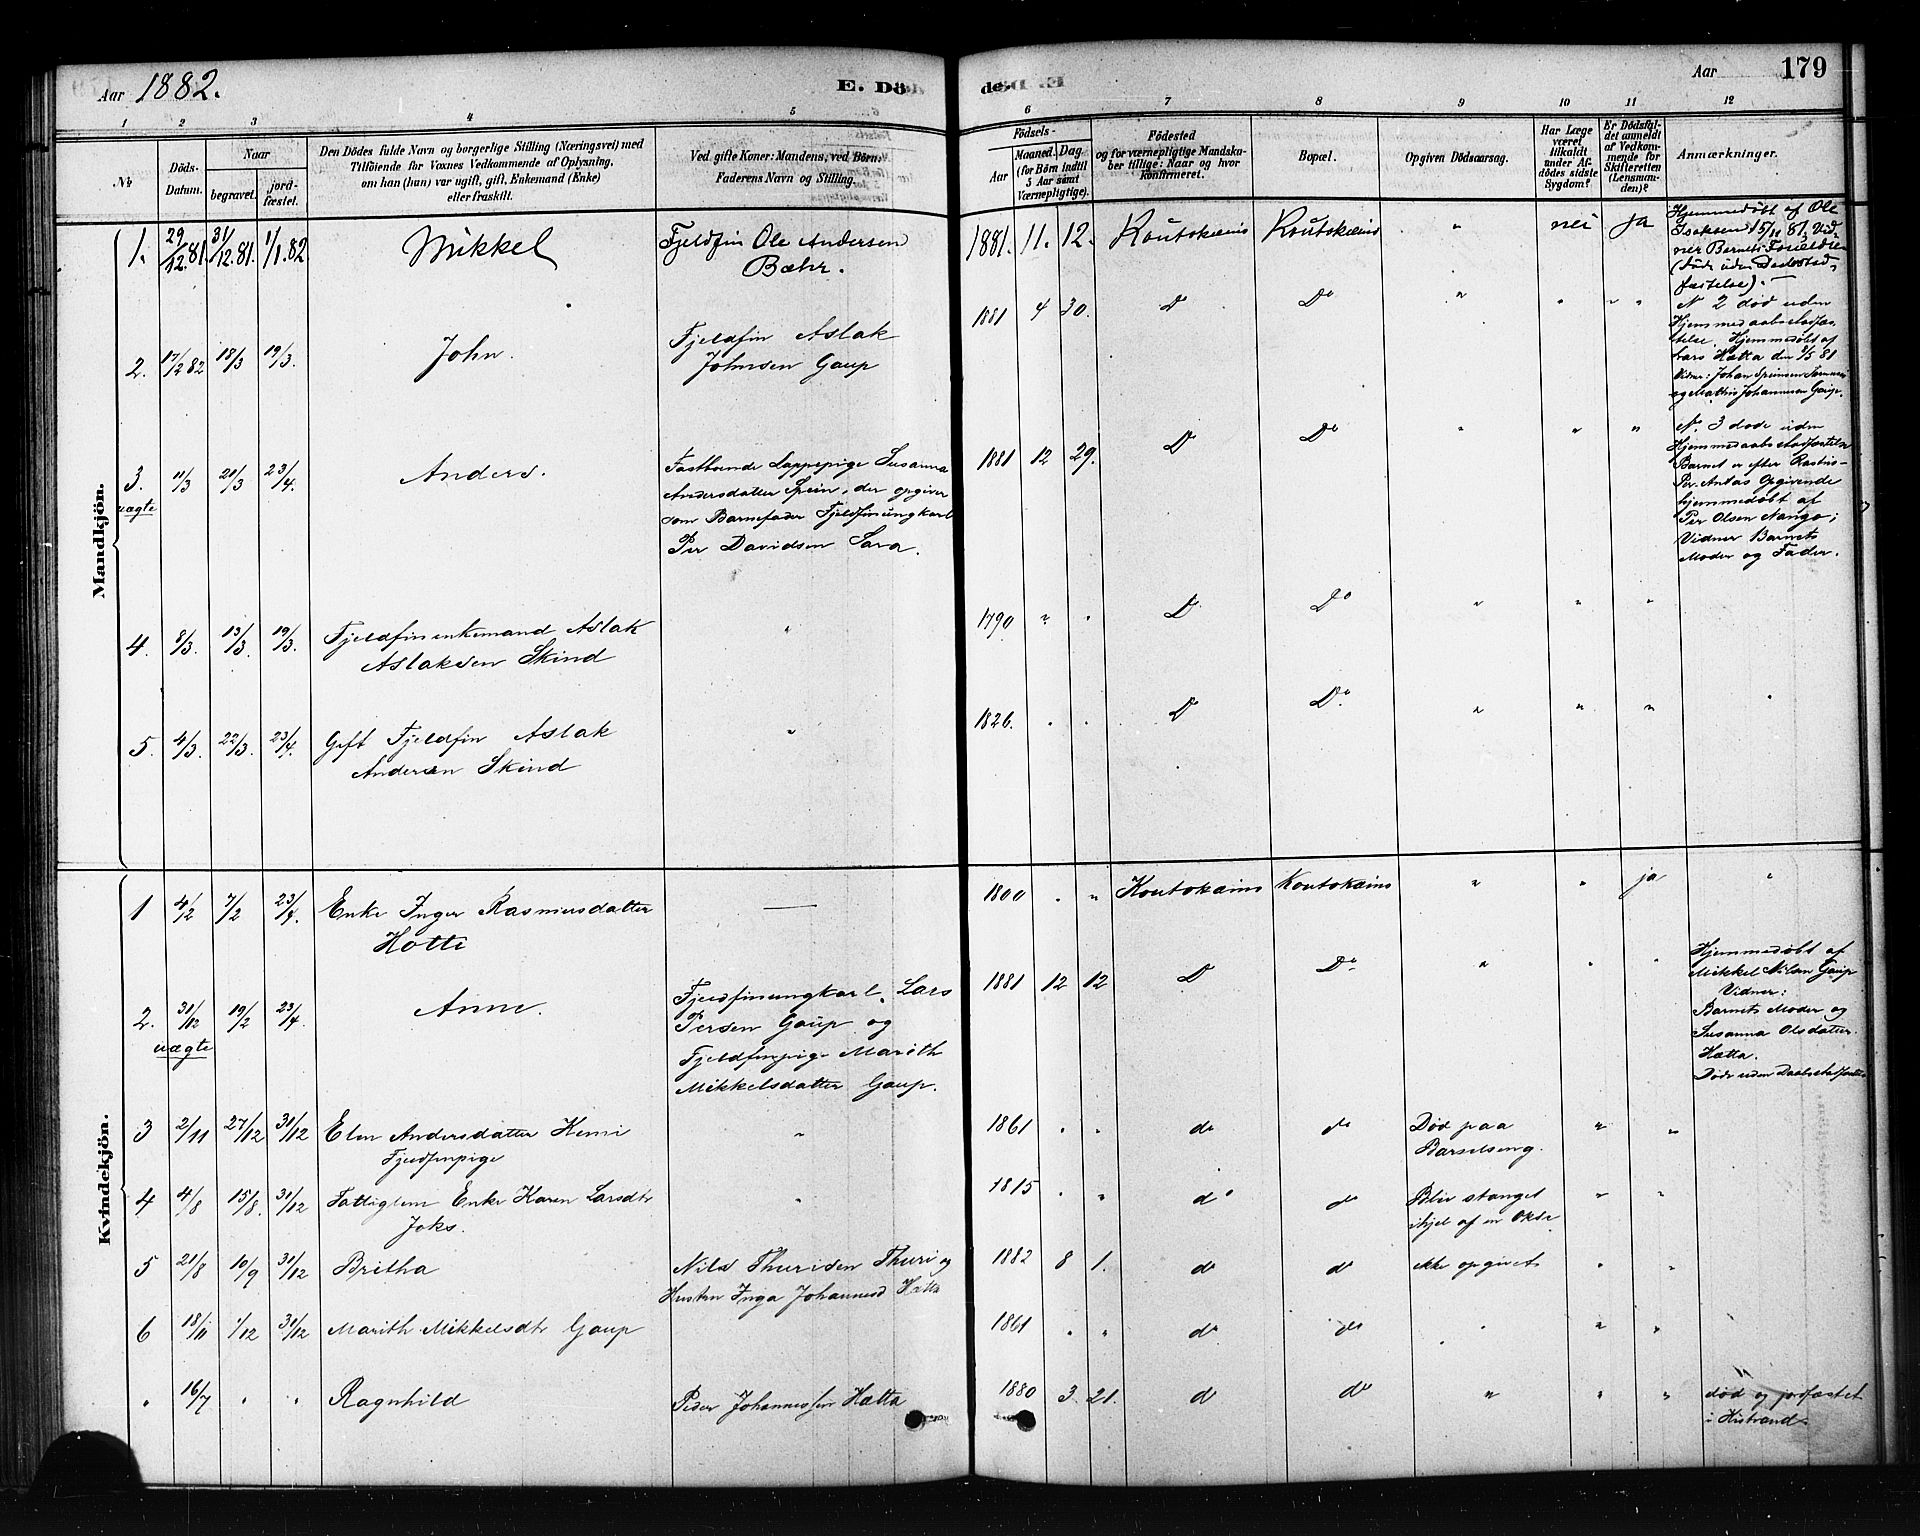 Aar 1882.
E. Dö
de.
Aar
179
1
2
3
4
5
6
7
8
9
10
11
12
No
Döds-
Datum.
Naar
begravet.
jord-
fæstet.
Den Dödes fulde Navn og borgerlige Stilling (Næringsvei) med
Tilföiende for Voxnes Vedkommende af Oplysning,
om han (hun) var ugift, gift, Enkemand (Enke)
eller fraskilt.
Ved gifte Koner: Mandens, ved Börn:
Faderens Navn og Stilling.
Födsels-
Aar
Maaned. Dag.
(for Börn indtil
5 Aar samt
Værnepligtige).
Födested
og for værnepligtige Mandsku-
ber tillige: Naar og hvor
konfirmeret.
Bopæl.
Opgiven Dödsaarsag.
Har Læge
været
tilkaldt
under Af-
dödes sidste
Sygdom?
Er Dödsfal-
det anmeldt
af Vedkom-
mende for
Skifteretten
(Lensman-
den)?
Anmærkninger.
Mandkjön.
1. 29/12.81. 31/12.81. 1/1.82 Mikkel Fjeldfin Ole Andersen
Bæhr.
1881. 11. 12. Koutokæino Koutokæino " nei ja
Hjemmedöbt af Ole
Isaksen 15/11 81. Vid-
ner Barnets Forældre
fæstelse).
2. 17/2 82 18/3 19/3. John. Fjeldfin Aslak
Johnsen Gaup
1881 4 30. Do Do " " " "
N. 2 död uden
Hjemmedaabsstadfæs-
telse. Hjemmedöbt af
Lars Hætta den 8/5 81
Vidner: Johan
og Mathis Johannesen Gaup.
3. uægte 11/3 20/3 23/4. Anders. Fastboende Lappepige Susanna
Andersdatter Spein, der opgiver
som Barnefader Fjeldfinungkarl
Per Davidsen Sara.
1881 12 29. Do Do " " "
N. 3 döde uden
Hjemmedaabsstadfæstelse
Barnet er efter
Per Antas Opgivende
hjemmedöbt af
Per Olsen Nango;
Vidner Barnets
Moder og Fader.
4. 8/3. 13/3 19/3. Fjeldfinenkemand Aslak
Aslaksen Skind
"
1790 " " Do Do " " "
5. 4/3. 22/3. 23/4. Gift Fjeldfin Aslak
Andersen Skind
"
1826. " " Do Do " " " "
Kvindekjön.
1 4/2 7/2 23/4. Enke Inger Rasmusdatter
Hotti
1800 " " Koutokæino Koutokæino " " ja "
2. uægte 31/12 19/2 23/4. Anne. Fjeldfinungkarl Lars
Persen Gaup og
Fjeldfinpige Marith
Mikkelsdatter Gaup.
1881 12 12 Do Do " " "
Hjemmedöbt af
Mikkel Nilsen Gaup
Vidner:
Barnets Moder og
Susanna Olsdatter
Hætta.
Döde uden Daabsstadfæstelse
3 2/11 27/12 30/12 Elen Andersdatter Kemi
Fjeldfinpige
"
1861 " " do do Död paa
Barselseng. " "
4 4/8 15/8. 31/12 Fattiglem Enke Karen Larsdtr
Joks.
"
1815 " " do do Blev stanget
ihjel af en Okse " "
5 21/8 10/9 30/12 Britha Nils Thurisen Thuri og
Hustru Inga Johannesd Hætta
1882 8 1. do do ikke opgivet " "
6 18/11 1/12 30/12 Marith Mikkelsdtr Gaup
1861 " " do do " " "
" 16/7 " " Ragnhild Peder Johannessen Hætta
1880 3. 21. do do " " "
död og jordfæstet
i Kistrand